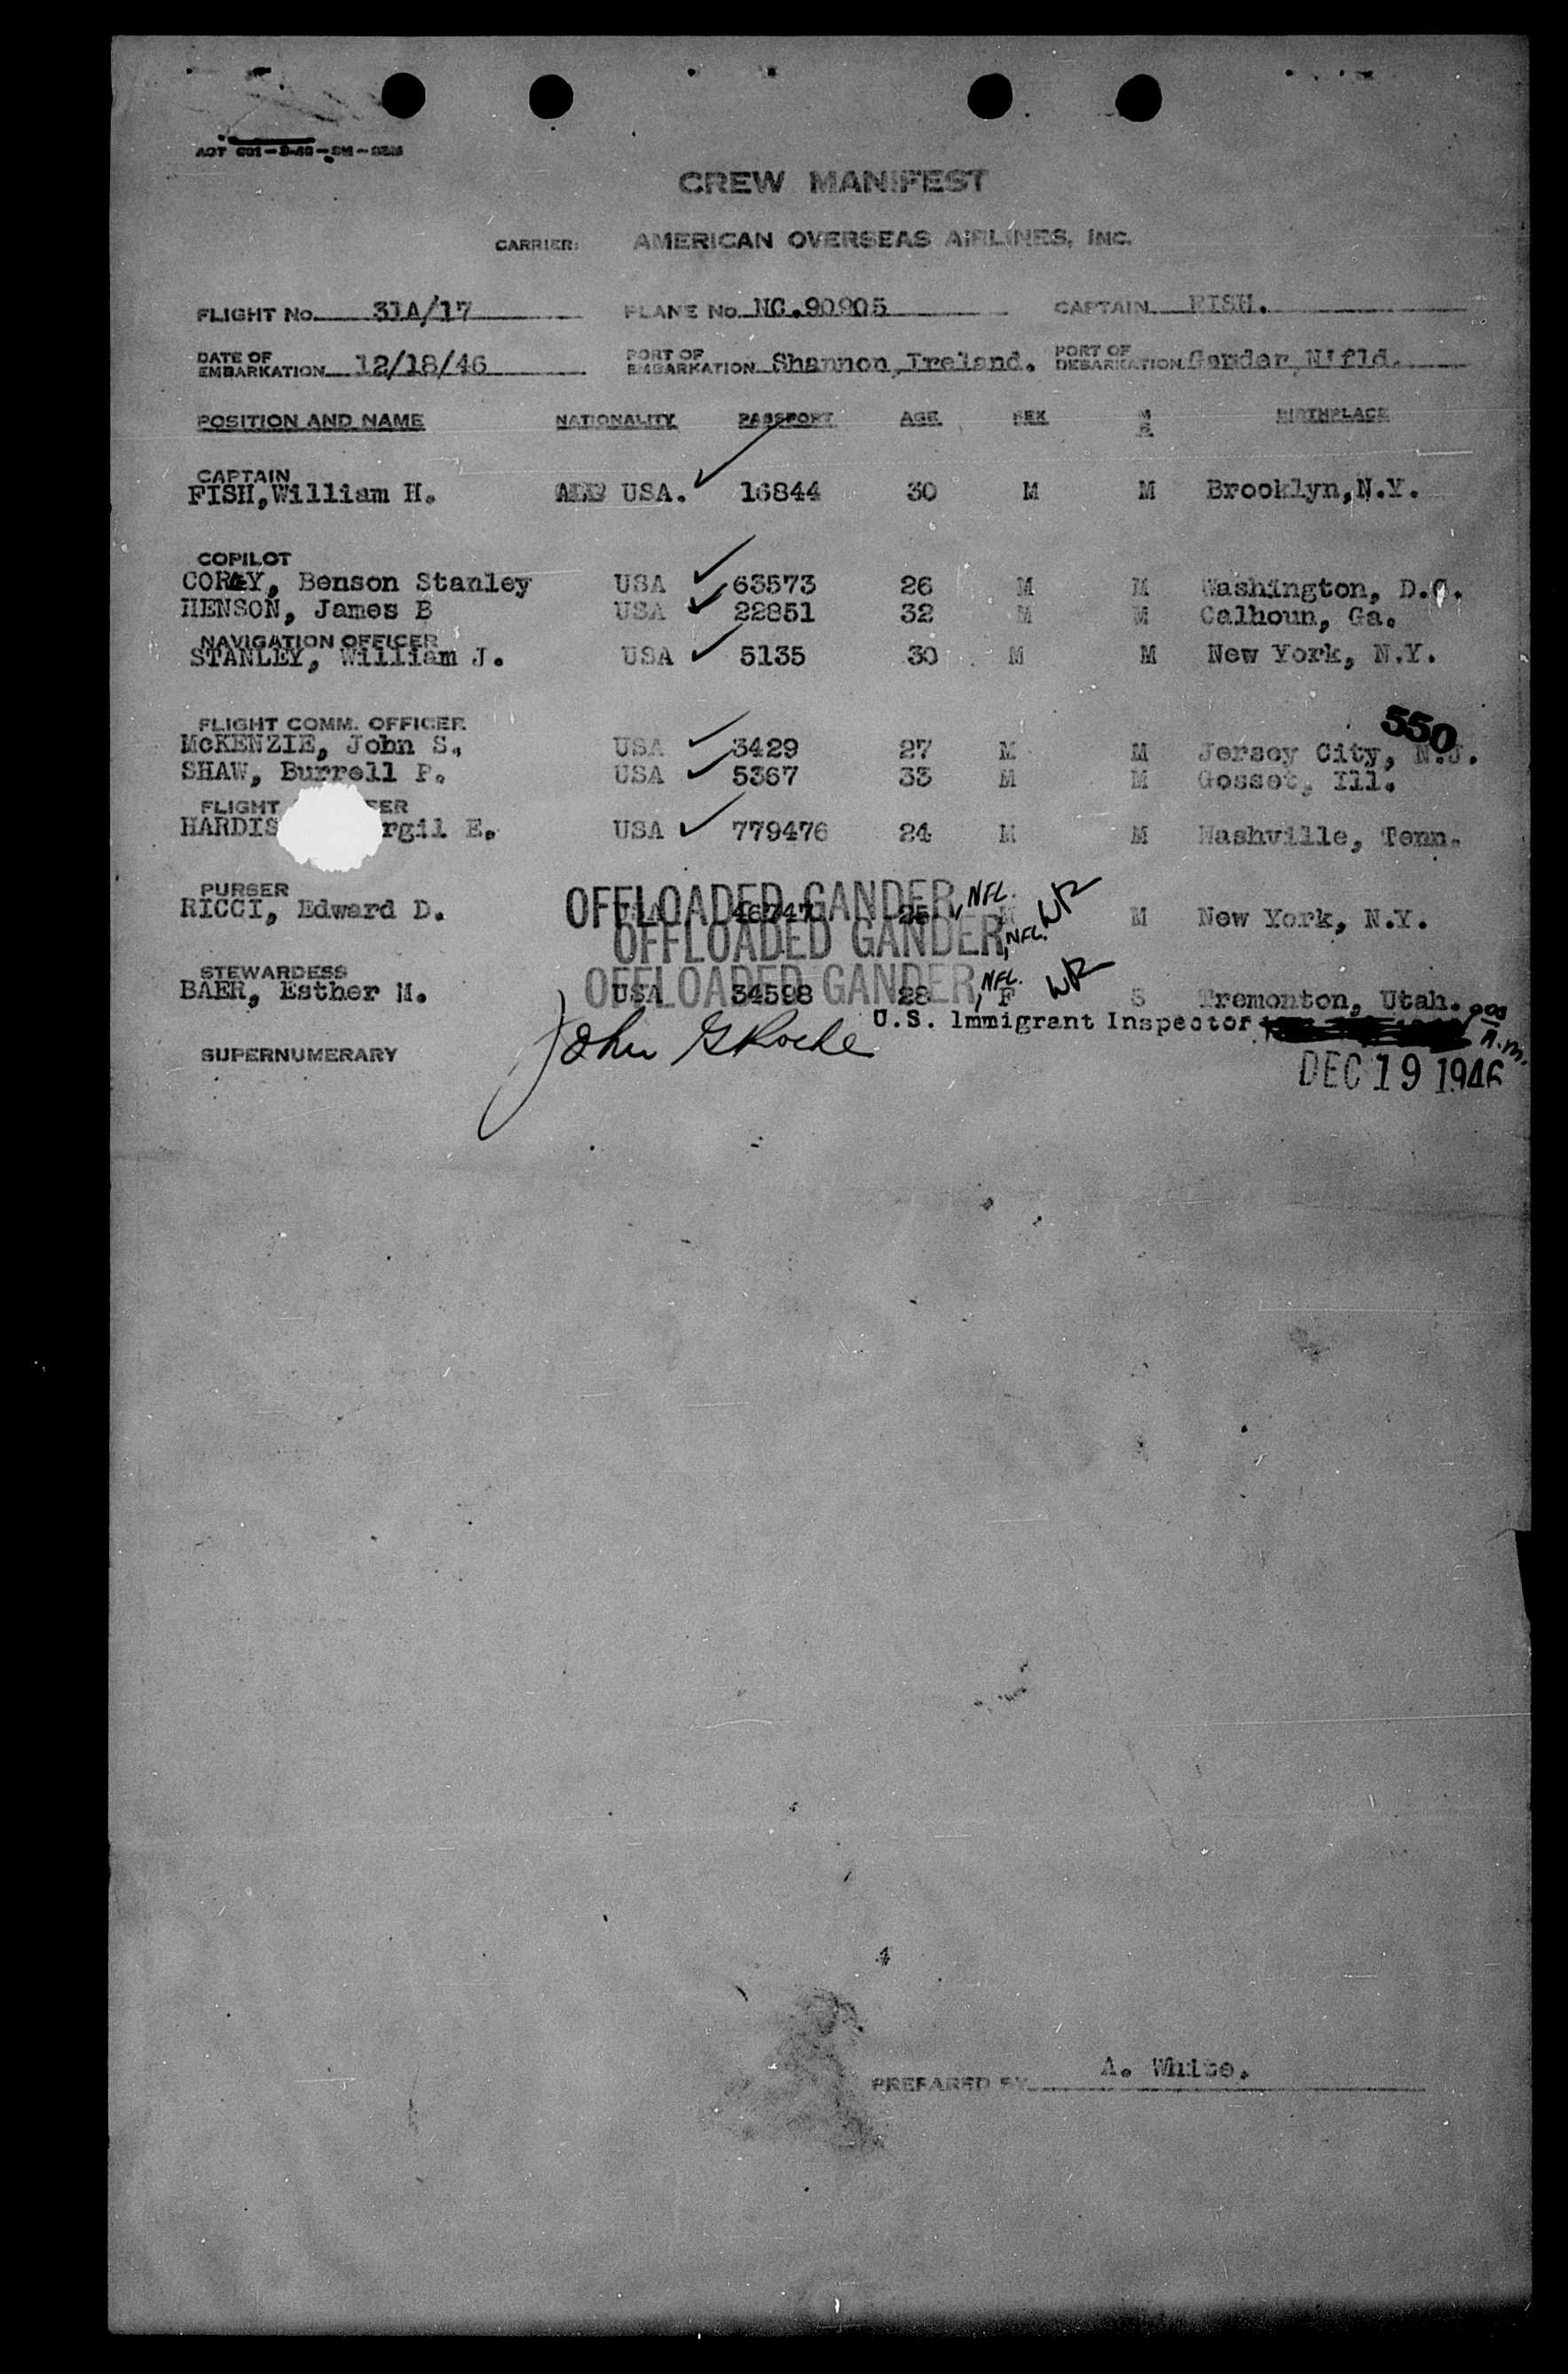 CREW MANIFEST
CARRIER: AMERICAN OVERSEAS AIRLINES, INC.
FLIGHT No. 31A/17 PLANE No. NC.90905 CAPTAIN FISH.
DATE OF EMBARKATION 12/18/46 PORT OF EMBARKATION Shannon, Ireland. PORT OF DEBARKATION Gander N'fld.
POSITION AND NAME NATIONALITY PASSPORT AGE SEX M S BIRTHPLACE
CAPTAIN
FISH,William H. USA. 16844 30 M M Brooklyn,N.Y.
COPILOT
CORAY, Benson Stanley USA 63573 26 M M Washington, D.C.
HENSON, James B USA 22851 32 M M Calhoun, Ga.
NAVIGATION OFFICER
STANLEY, William J. USA 5135 30 M M New York, N.Y.
FLIGHT COMM. OFFICER
550
McKENZIE, John S. USA 3429 27 M M Jersey City, N.J.
SHAW, Burrell P. USA 5367 33 M M Gosset, Ill.
FLIGHT
HARDIS rgil E. USA 779476 24 M M Nashville, Tenn.
PURSER
OFFLOADED GANDER, NFL. WR
RICCI, Edward D. USA 26 M M New York, N.Y.
OFFLOADED GANDER, NFL.
STEWARDESS
OFFLOADED GANDER, NFL. WR
BAER, Esther M. USA 34598 28 F S Tremonton, Utah.
U.S. Immigrant Inspector
John G Roche
A.m.
SUPERNUMERARY
DEC 19 1946
PREPARED BY A. White.